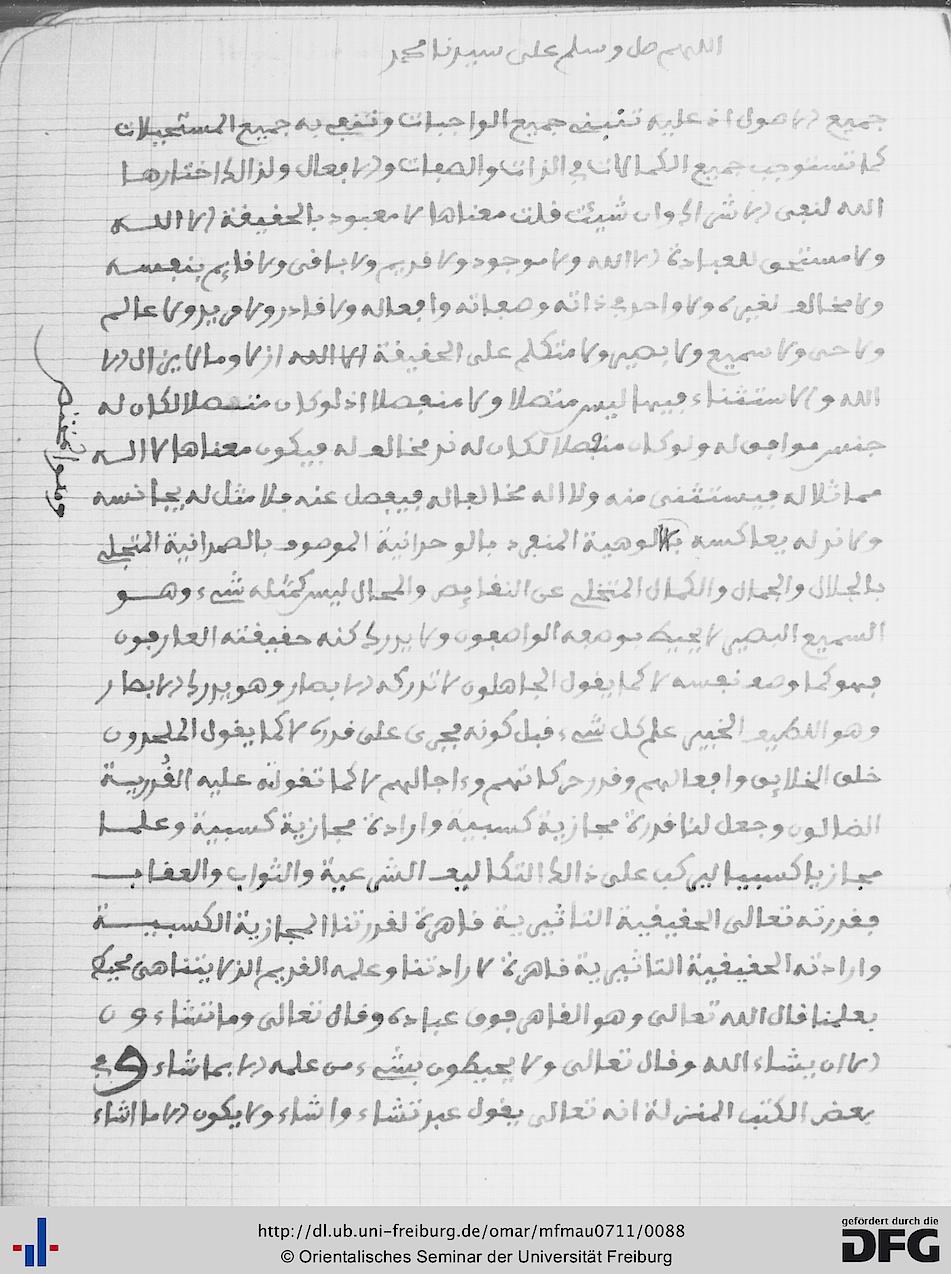 اللهم صل وسلم على سيدنا محمد
جميع الاصول اذ عليه تنبني جميع الواجبات وتنتفي به جميع المستحيلات
كما تستوجب جميع الكمالات في الذات والصفات والافعال ولذالك اختارها
الله لنفي الاشراك وان شيئت قلت معناها لا معبود بالحقيقة الا اللـــه
ولا مستحق للعبادة الا الله ولا موجود ولا قديم ولا باقى ولا قايم بنفسه
ولا مخالف لغيره ولا واحد في ذاته وصفاته وافعاله ولا قادر ولا مريد ولا عالم
ولا حى ولا سميع ولا بصير ولا متكلم على الحقيقة الا الله ازلا وما لا يزال الا
الله والاستثناء فيها ليس متصلا ولا منفصلا اذ لو كان متصلا لكان له
جنس موافق له ولو كان منفصلا لكان له ند مخالف له فيكون معناها لا الـــه
مماثلا له فيستثنى منه ولا اله مخالفا له فيفصل عنه فلا مثل له يجانسه
ولا ند له يعاكسه بالالوهية المنفرد بالوحدانية الموصوف بالصمدانية المتجلي
بالجلال والجمال والكمال المتخلي عن النقايص والمحال ليس كمثله شيء وهــو
السميع البصير لا يحيط بوصفه الواصفون ولا يدرك كنه حقيقته العارفون
فهو كما وصف نفسه لا كما يقول الجاهلون لا تدركه الابصار وهو يدرك الابصار
وهو اللطيف الخبير علم كل شيء قبل كونه فجرى على قدره لا كما يقول الملحدون
خلق الخلايق وافعالهم وقدر حركاتهم وءاجالهم لا كما تقولته عليه القدريـة
الضالون وجعل لنا قدرة مجازية كسبية وارادة مجازية كسبية وعلمــا
مجازيا كسبيا ليركب على ذالك التكاليف الشرعية والثواب والعقاب
فقدرته تعالى الحقيقية التاثيرية قاهرة لقدرتنا المجازية الكسبيــة
وارادته الحقيقية التاثيرية قاهرة لارادتنا وعلمه القديم الذ لا يتناهى محيط
بعلمنا قال الله تعالى وهو القاهر فوق عباده وقال تعالى وما تشاءون
الا ان يشاء الله وقال تعالى ولا يحيطون بشيء من علمه الا بما شاء وفي
بعض الكتب المنزلة انه تعالى يقول عبد تشاء واشاء ولا يكون الا ما اشاء
http://dl.ub.uni-freiburg.de/omar/mfmau0711/0088
© Orientalisches Seminar der Universität Freiburg
gefördert durch die
DFG